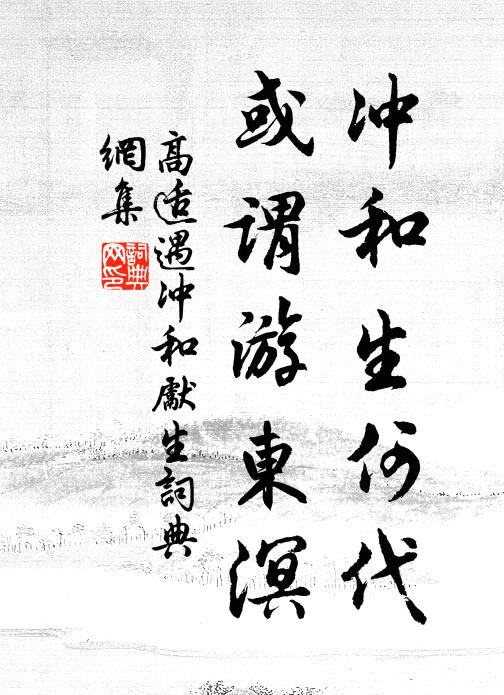 冲和生何代
或谓游東溟
高适遇冲和獻生詞典
網集
詞典网印